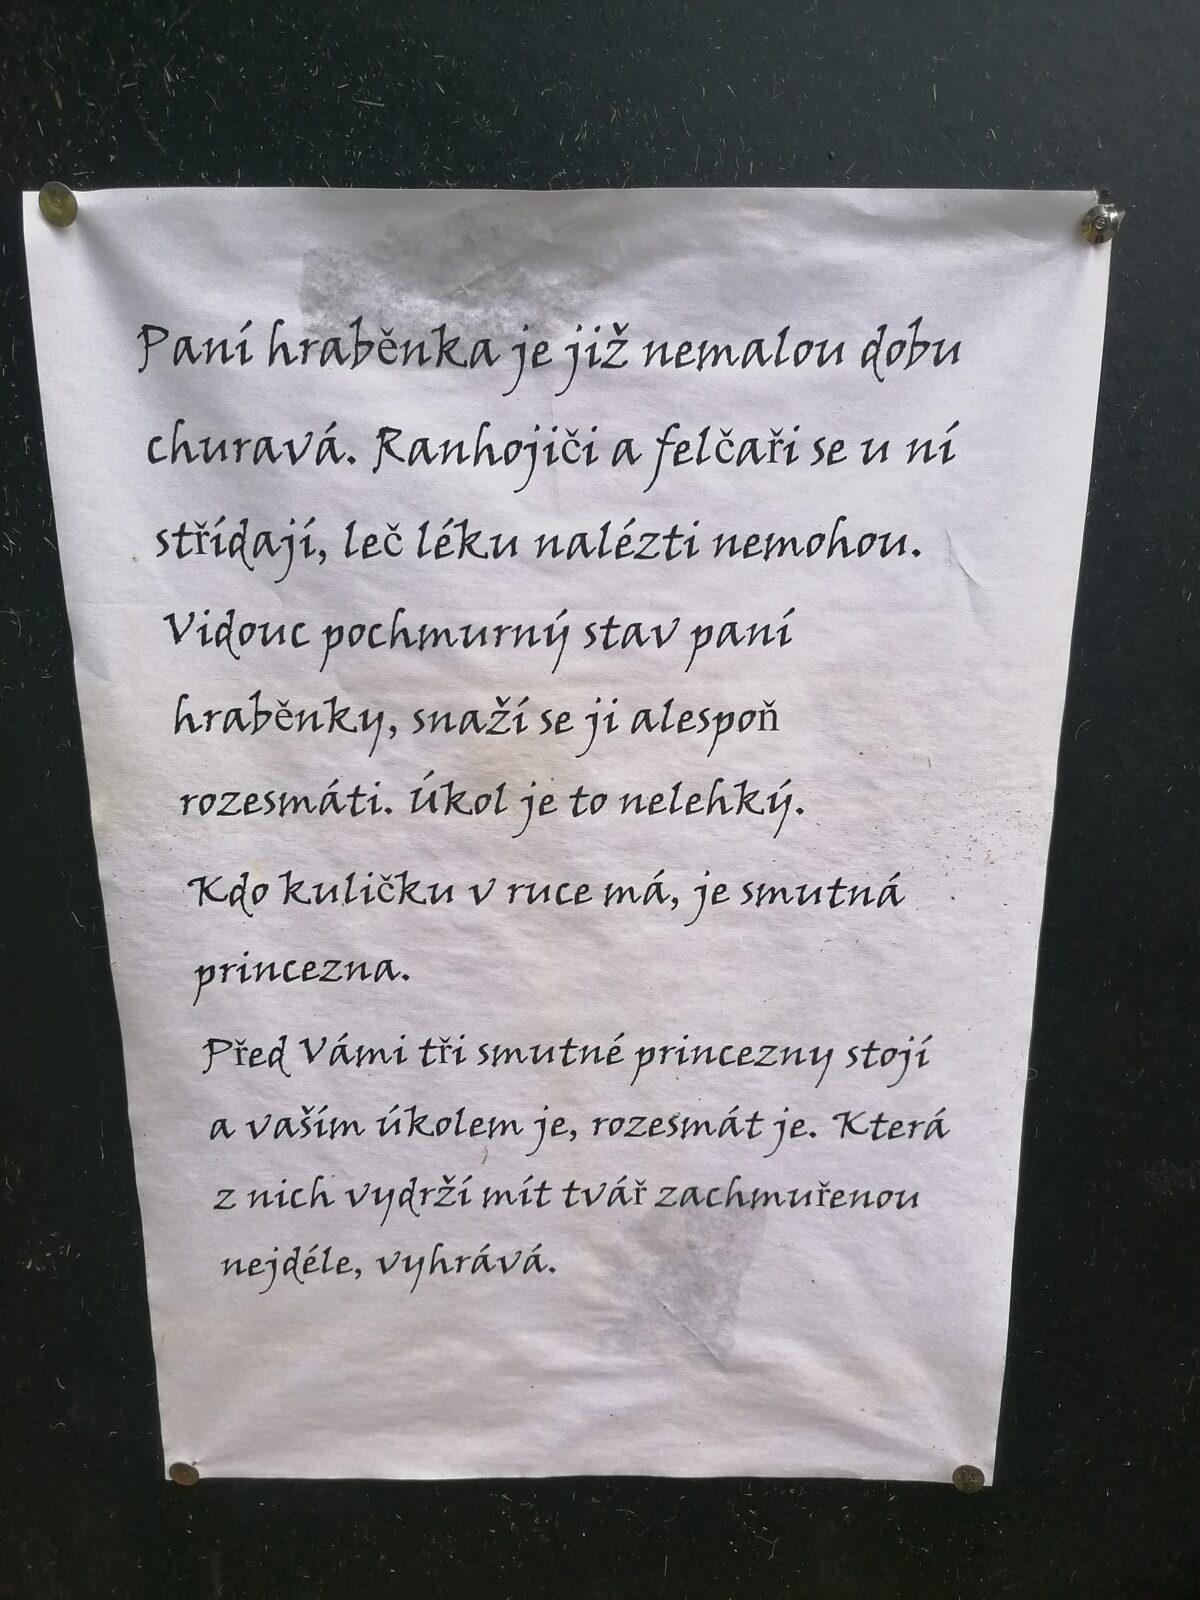 Paní hraběnka je již nemalou dobu
churavá. Ranhojiči a felčaři se u ní
střídají, leč léku nalézti nemohou.
Vidouc pochmurný stav paní
hraběnky, snaží se ji alespoň
rozesmáti. Úkol je to nelehký.
Kdo kuličku v ruce má, je smutná
princezna.
Před Vámi tři smutné princezny stojí
a vaším úkolem je, rozesmát je. Která
z nich vydrží mít tvář zachmuřenou
nejdéle, vyhrává.